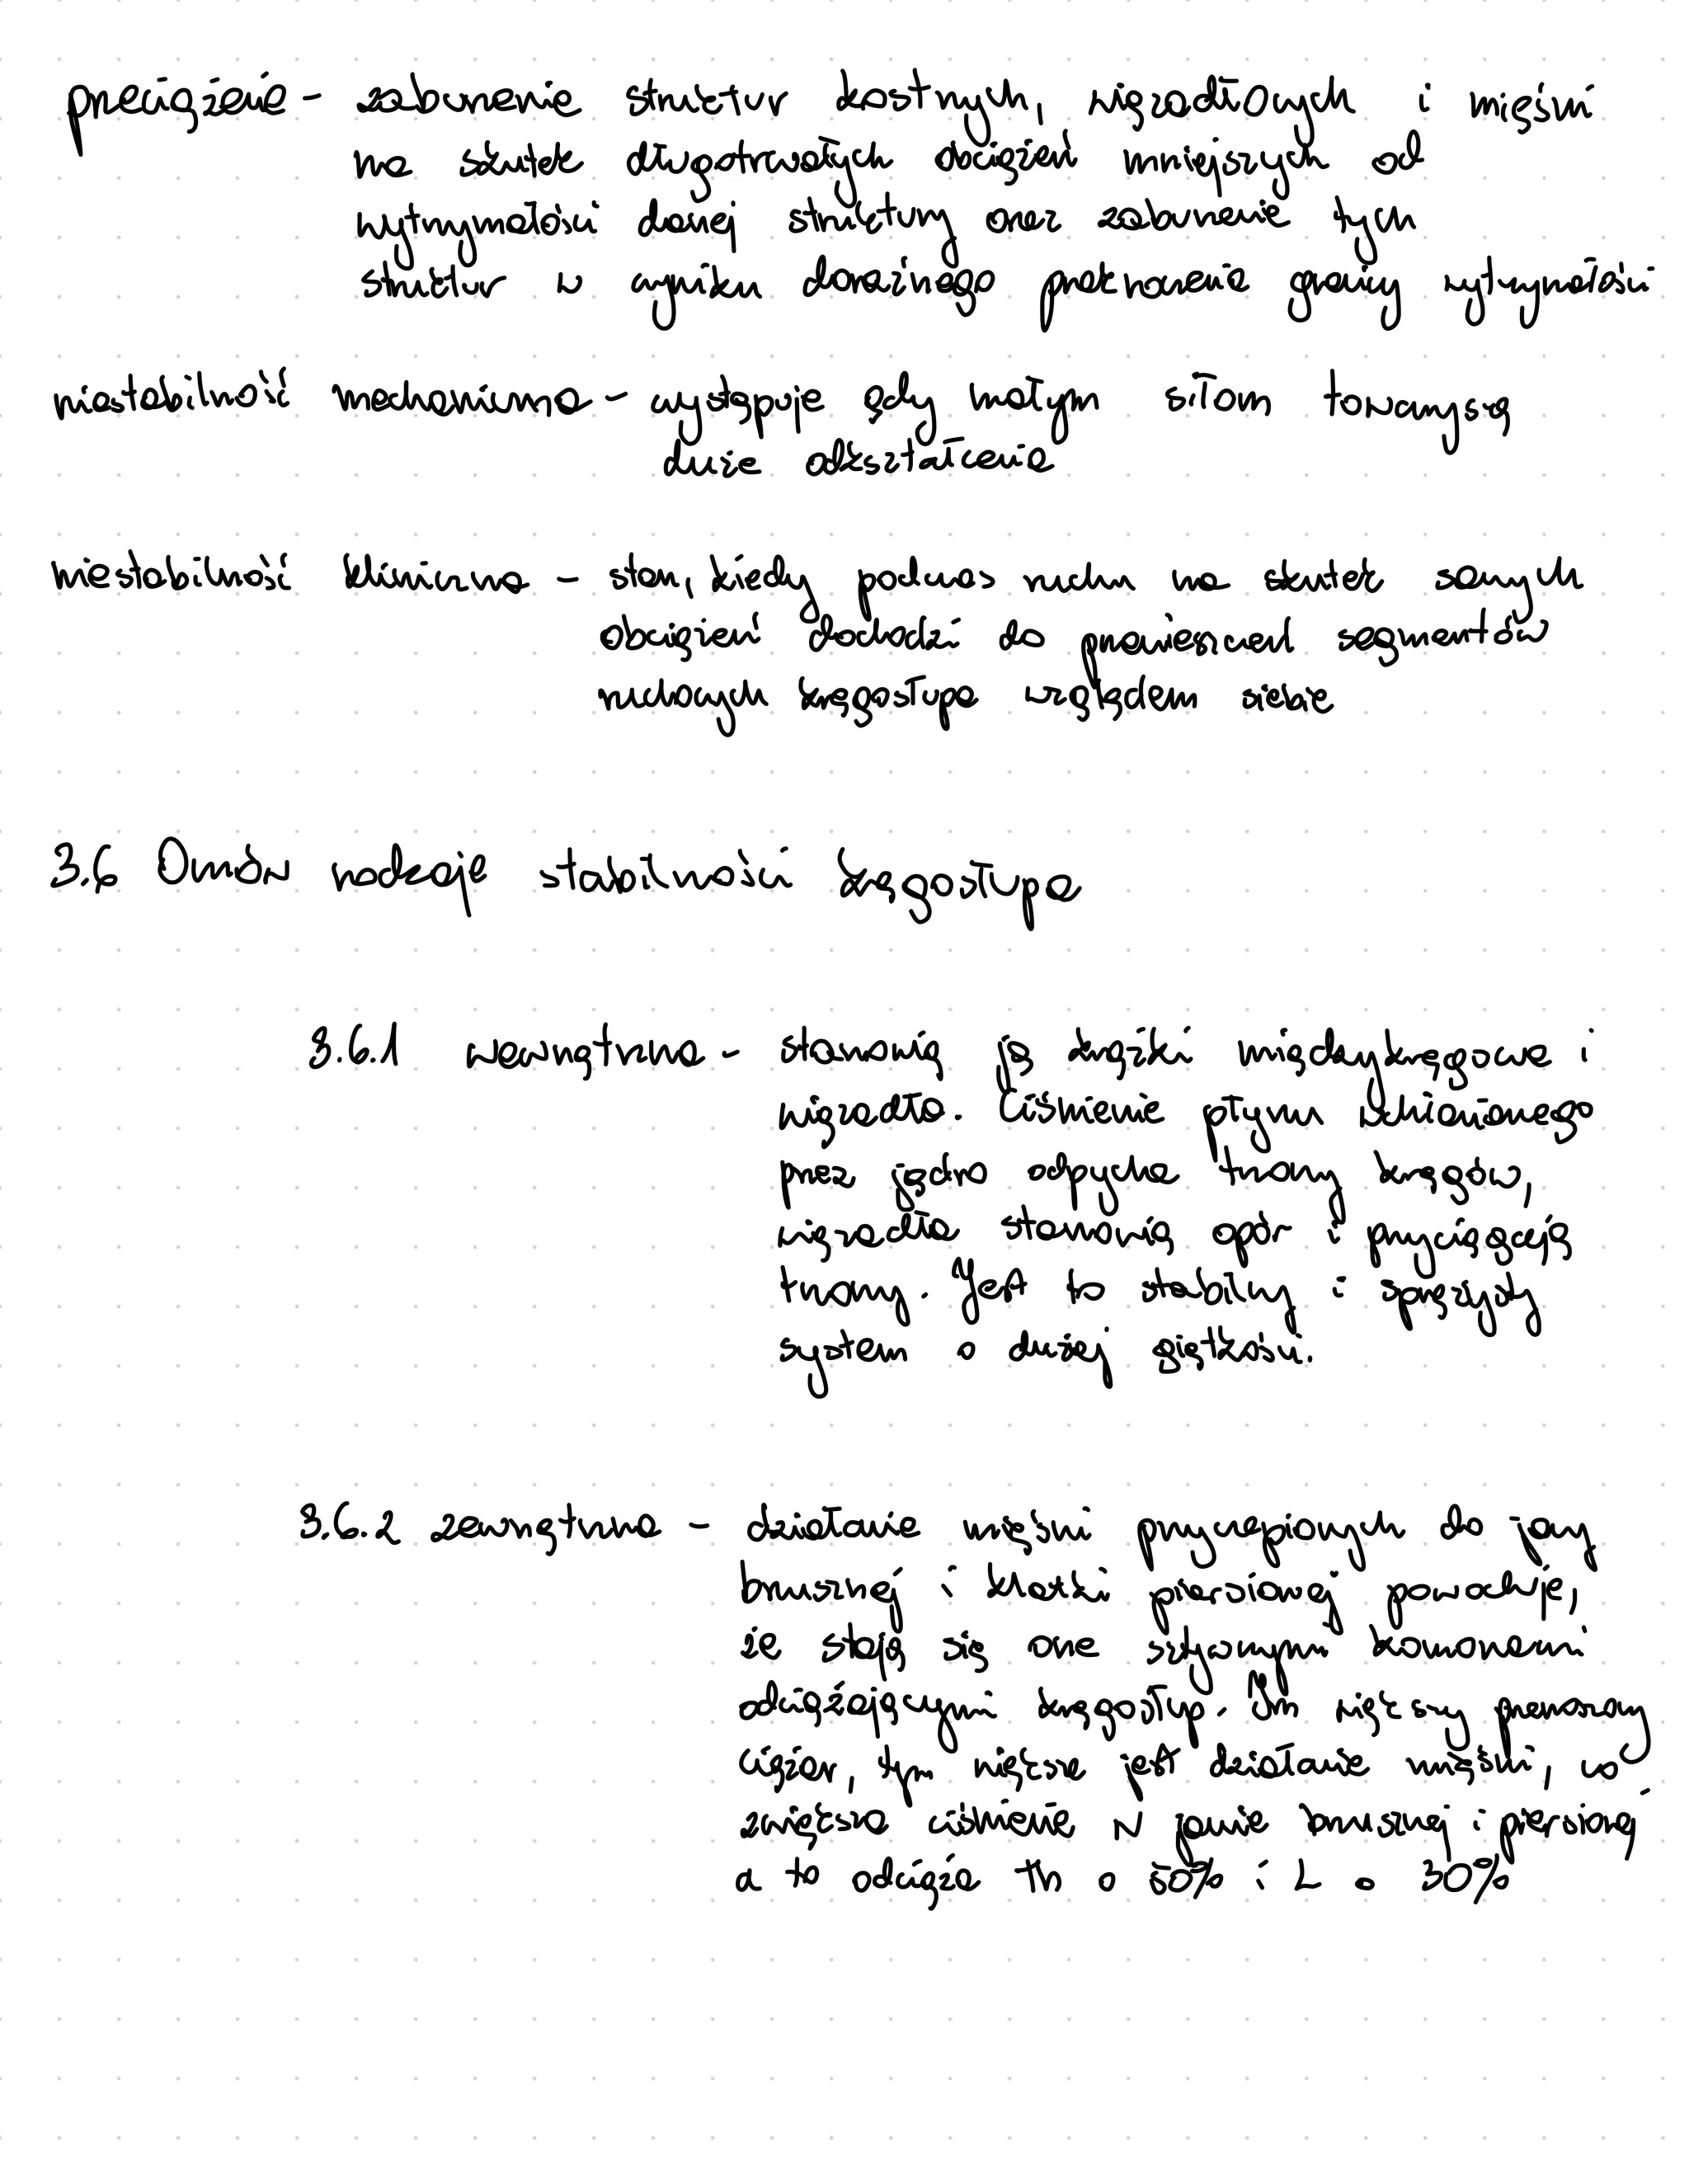 przeciążenie - zaburzenie struktur kostnych, więzadłowych i mięśni
na skutek długotrwałych obciążeń mniejszych od
wytrzymałości danej struktury oraz zaburzenie tych
struktur w wyniku doraźnego przekroczenia granicy wytrzymałości
niestabilność mechaniczna - występuje gdy małym siłom towarzyszą
duże odkształcenia
niestabilność kliniczna - stan, kiedy podczas ruchu na skutek samych
obciążeń dochodzi do przemieszczeń segmentów
ruchowych kręgosłupa względem siebie
3.6 Omów rodzaje stabilności kręgosłupa
3.6.1 wewnątrzna - stanowią ją krążki międzykręgowe i
więzadła. Ciśnienie płynu wchłanianego
przez jądro odpycha trzony kręgów,
więzadła stanowią opór i przyciągają
trzony. Jest to stabilny i sprężysty
system o dużej giętkości.
3.6.2 zewnętrzna - działanie mięśni przyczepionych do jamy
brzusznej i klatki piersiowej powoduje,
że stają się one sztywnymi komorami
odciążającymi kręgosłup. Im większy przenoszony
ciężar, tym większe jest działanie mięśni, co
zwiększa ciśnienie w jamie brzusznej i piersiowej
a to odciąża Th o 50% i L o 30%